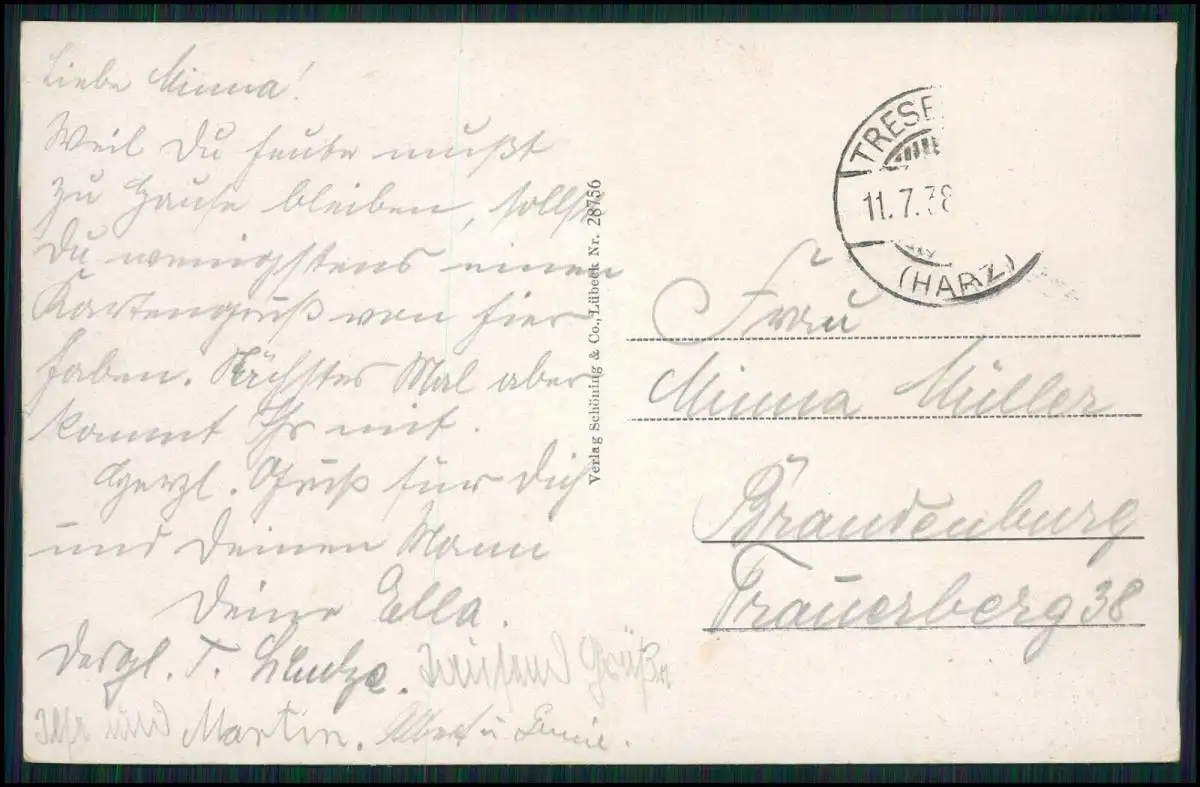 Liebe Minna!
Weil Du heute mußt
zu Hause bleiben, sollst
Du wenigstens einen
Kartengruß von hier
haben. Nächstes Mal aber
kommt Ihr mit.
Herzl. Gruß für Dich
und Deinen Mann
Deine Ella.
Desgl. T.
Tausend Grüße
und Martin. Albert u.
Verlag Schöning & Co., Lübeck Nr. 28756
TRESE
11.7.38
(HARZ)
Frau
Minna Müller
Brandenburg
Trauerberg 38